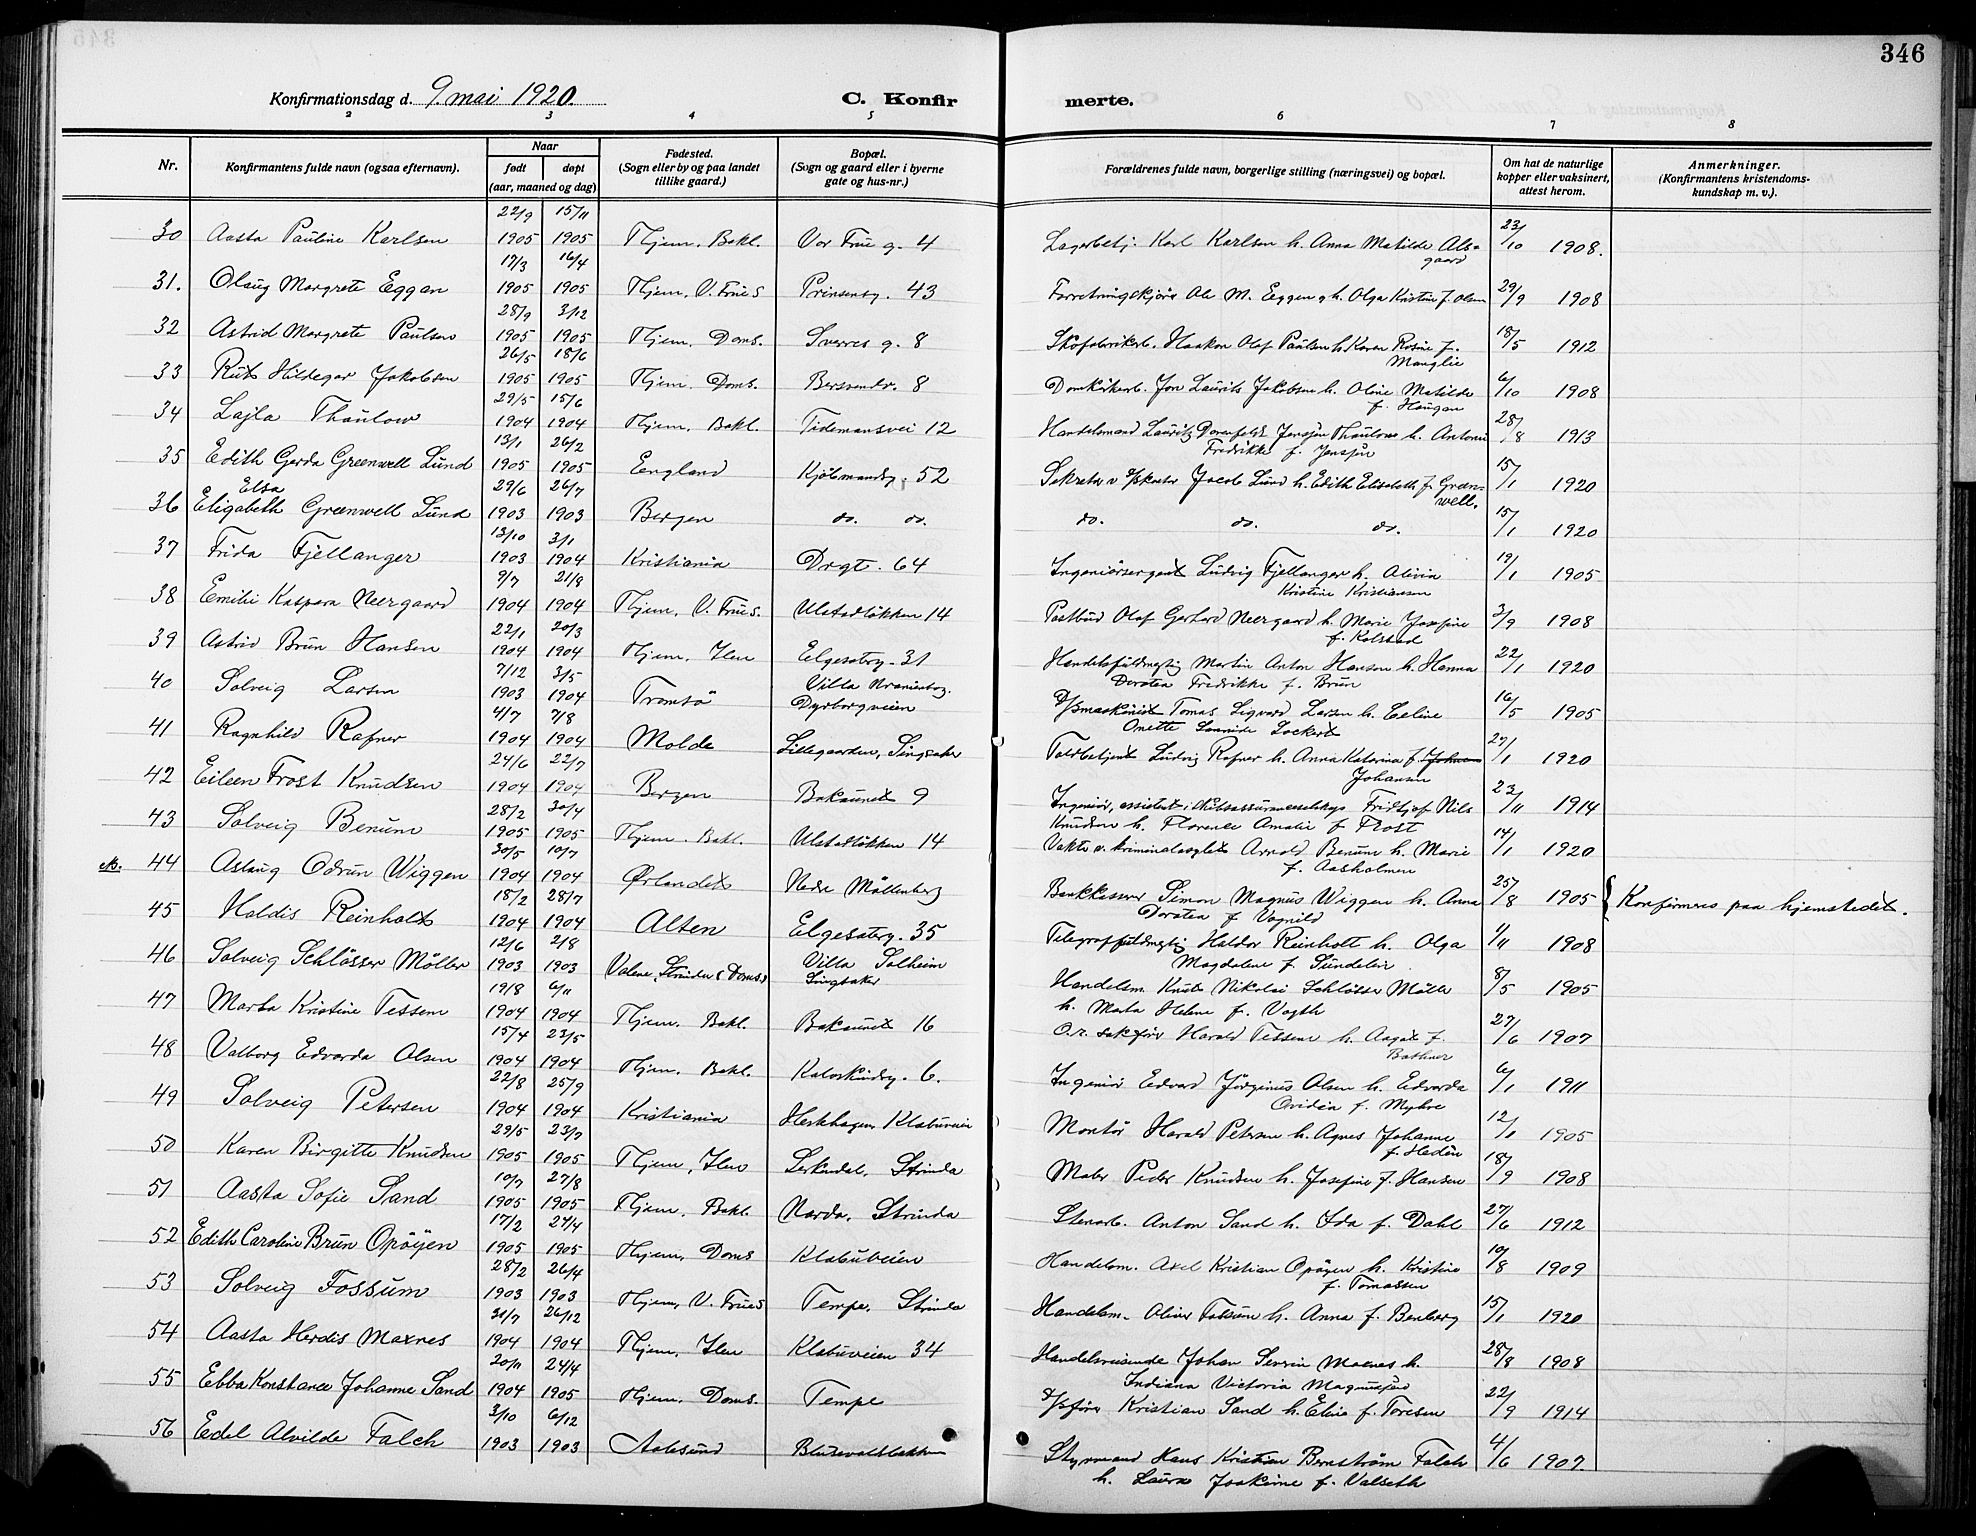 346
Konfirmationsdag d. 9 mai 1920.
C. Konfir merte.
2 3 4 5 6 7 8
Nr. Konfirmantens fulde navn (ogsaa efternavn). Naar født døpt (aar, maaned og dag) Fødested. (Sogn eller by og paa landet tillike gaard.) Bopæl. (Sogn og gaard eller i byerne gate og hus-nr.) Forældrenes fulde navn, borgerlige stilling (næringsvei) og bopæl. Om hat de naturlige kopper eller vaksinert, attest herom. Anmerkninger. (Konfirmantens kristendomskundskap m. v.).
30 Aasta Pauline Karlsen 22/9 1905 15/11 1905 Thjem. Bakl. Vor Frue g. 4 Lagerbetj. Karl Karlsen h. Anna Matilde Alsgaard 23/10 1908.
31. Olaug Margrete Eggen 17/3 1905 16/4 1905 Thjem, V. Frues Prinsensg. 43 Forretningskjörer Ole M. Eggen g h. Olga Kristine f. Olsen 29/9 1908
32 Astrid Margrete Paulsen 28/9 1905 3/12 1905 Thjem. Doms. Sverres g. 8 Skofabrikarb. Haakon Olaf Paulsen h. Karen Rosine f. 18/5 1912
33 Rut Hildegar Jakobsen 26/5 1905 18/6 1905 Thjem. Doms. 8 Domkirkearb. Jon Laurits Jakobsen h. Oline Matilde f. Haugan 6/10 1908
34 Lajla Thaulow 29/5 1904 15/6 1904 Thjem. Bakl. Tidemansvei 12 Handelsmand Lauritz Dorenfeldt Jenssen Thaulow h. Antonie Fredrikke f. Jenssen 28/8 1913
35 Edith Gerda Greenwell Lund 13/1 1905 26/2 1905 England Kjöbmandsg. 52 Jacob Lund h. Edith Elisabeth f. Greenwell. 15/1 1920
36 Elsa Elizabeth Greenwell Lund 29/6 1903 26/7 1903 Bergen do. do. do. do. do. 15/1 1920
37 Frida Fjellanger 13/10 1903 3/1 1904 Kristiania Drgt. 64 Ingeniörsergent Ludvig Fjellanger h. Alivia Kristine Kristiansen 19/1 1905
38 Emilie Kaspara Neergaard 9/7 1904 21/8 1904 Thjem, V. Frues. Ulstadlökken 14 Postbud Olaf Gerhard Neergaard h. Marie Josefine f. Kolstad 3/9 1908
39 Astrid Brun Hansen 22/1 1904 20/3 1904 Thjem, Ilen Elgesetrg. 31 Handelsfuldmegtig Martin Anton Hansen h. Hanna Dorotea Fredrikke f. Brun 22/1 1920
40 Solveig Larsen 7/12 1903 3/5 1904 Tromsö Villa Dyrborgveien D/smaskinist Tomas Sigvard Larsen h. Celine Onette Lockert 16/5 1905
41 Ragnhild Rafner 4/7 1904 7/8 1904 Molde Lillegaarden, Singsaker Toldbetjent Ludvig Rafner h. Anna Katarina f. Johansen 27/1 1920
42 Eileen Frost Knudsen 24/6 1904 22/7 1904 Bergen Bakaunet 9 Ingeniör, assistent i Fridtjof Nils Knudsen h. Florence Amalie f. Frost 23/11 1914
43 Solveig Benum 28/2 1905 30/4 1905 Thjem. Bakl. Ulstadlökken 14 Arnold Benum h. Marie f. Aasholmen 14/1 1920
44 Aslaug Odrun Wiggen 30/5 1904 10/7 1904 Ørlandet Nedre Möllenberg Bankkasserer Simon Magnus Wiggen h. Anna Dorotea f. Vognild 25/8 1905 Konfirmeres paa hjemstedet.
45 Haldis Reinholt 18/2 1904 28/7 1904 Alten Elgesetrg. 35 Telegraffuldmegtig Haldor Reinholt h. Olga Magdalene f. Sundelin 1/11 1908
46 Solveig Schlösser Möller 12/6 1903 2/8 1903 Valene, Strinden (Doms) Villa Solheim Singsaker Handelsm. Knut Nikolai Schlösser Möller h. Marta Helene f. Vogth 8/5 1905
47 Marta Kristine Tessem 19/8 1904 6/11 1904 Thjem. Bakl. Bakaunet 16 O.r. sakförer Harald Tessem h. Aagot f. 27/6 1907
48 Valborg Edvarda Olsen 15/4 1904 23/5 1904 Thjem. Bakl. 6. Ingeniör Edvard Jörginus Olsen h. Edvarda Ovidia f. Myhre 6/1 1911
49 Solveig Petersen 22/8 1904 25/9 1904 Kristiania Klæbuveien Montör Harald Petersen h. Agnes Johanne f. Hedén 12/1 1905
50 Karen Birgitte Knudsen 29/5 1905 23/7 1905 Thjem, Ilen Lerkendal, Strinda Maler Peder Knudsen h. Josefine f. Hansen 18/9 1908
51 Aasta Sofie Sand 10/7 1905 27/8 1905 Thjem, Bakl. Narda, Strinda Stenarb. Anton Sand h. Ida f. Dahl 27/6 1912
52 Edith Caroline Brun Opöijen 17/2 1905 24/4 1905 Thjem, Doms Klæbuveien Handelsm. Axel Kristian Opöyen h. Kristine f. Tomassen 10/8 1909
53 Solveig Fossum 28/2 1903 26/4 1903 Thjem, V. Frues Tempe, Strinda Handelsm. Oliver Fossum h. Anna f. Benberg 15/1 1920
54 Aasta Herdis Moxnes 31/7 1904 26/12 1904 Thjem, Ilen Klæbuveien 34 Handelsreisende Johan Severin Moxnes h. Indiana Victoria 28/8 1908
55 Ebba Konstance Johanne Sand 20/11 1904 24/4 1905 Thjem, Doms. Tempe D/sförer Kristian Sand h. Eline f. Toresen 22/9 1914
56 Edel Alvilde Falch 3/10 1903 6/12 1903 Aalesund Styrmand Hans Kristian Bernström Falch h. Laura Joakime f. Valseth 4/6 1907.